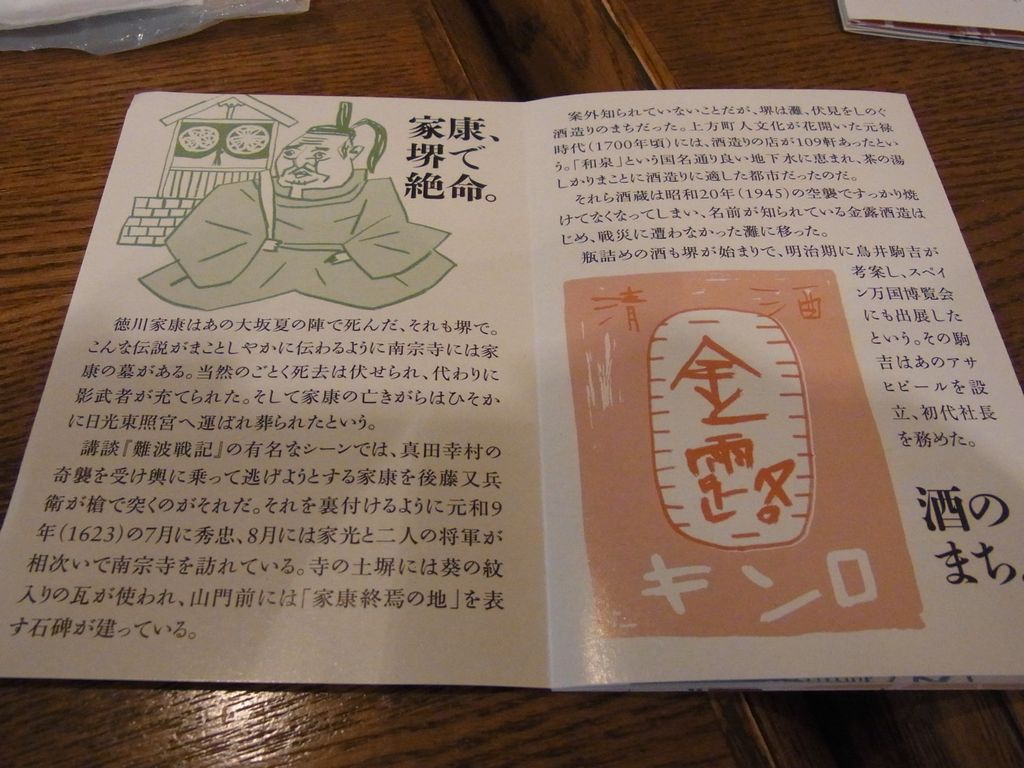 家康、
堺で
絶命。
徳川家康はあの大坂夏の陣で死んだ、それも堺で。
こんな伝説がまことしやかに伝わるように南宗寺には家
康の墓がある。当然のごとく死去は伏せられ、代わりに
影武者が充てられた。そして家康の亡きがらはひそか
に日光東照宮へ運ばれ葬られたという。
講談『難波戦記』の有名なシーンでは、真田幸村の
奇襲を受け輿に乗って逃げようとする家康を後藤又兵
衛が槍で突くのがそれだ。それを裏付けるように元和9
年(1623)の7月に秀忠、8月には家光と二人の将軍が
相次いで南宗寺を訪れている。寺の土塀には葵の紋
入りの瓦が使われ、山門前には「家康終焉の地」を表
す石碑が建っている。
案外知られていないことだが、堺は灘、伏見をしのぐ
酒造りのまちだった。上方町人文化が花開いた元禄
時代(1700年頃)には、酒造りの店が109軒あったとい
う。「和泉」という国名通り良い地下水に恵まれ、茶の湯
しかりまことに酒造りに適した都市だったのだ。
それら酒蔵は昭和20年(1945)の空襲ですっかり焼
けてなくなってしまい、名前が知られている金露酒造は
じめ、戦災に遭わなかった灘に移った。
瓶詰めの酒も堺が始まりで、明治期に鳥井駒吉が
考案し、スペイ
ン万国博覧会
にも出展した
という。その駒
吉はあのアサ
ヒビールを設
立、初代社長
を務めた。
清酒
金露
キンロ
酒の
まち。